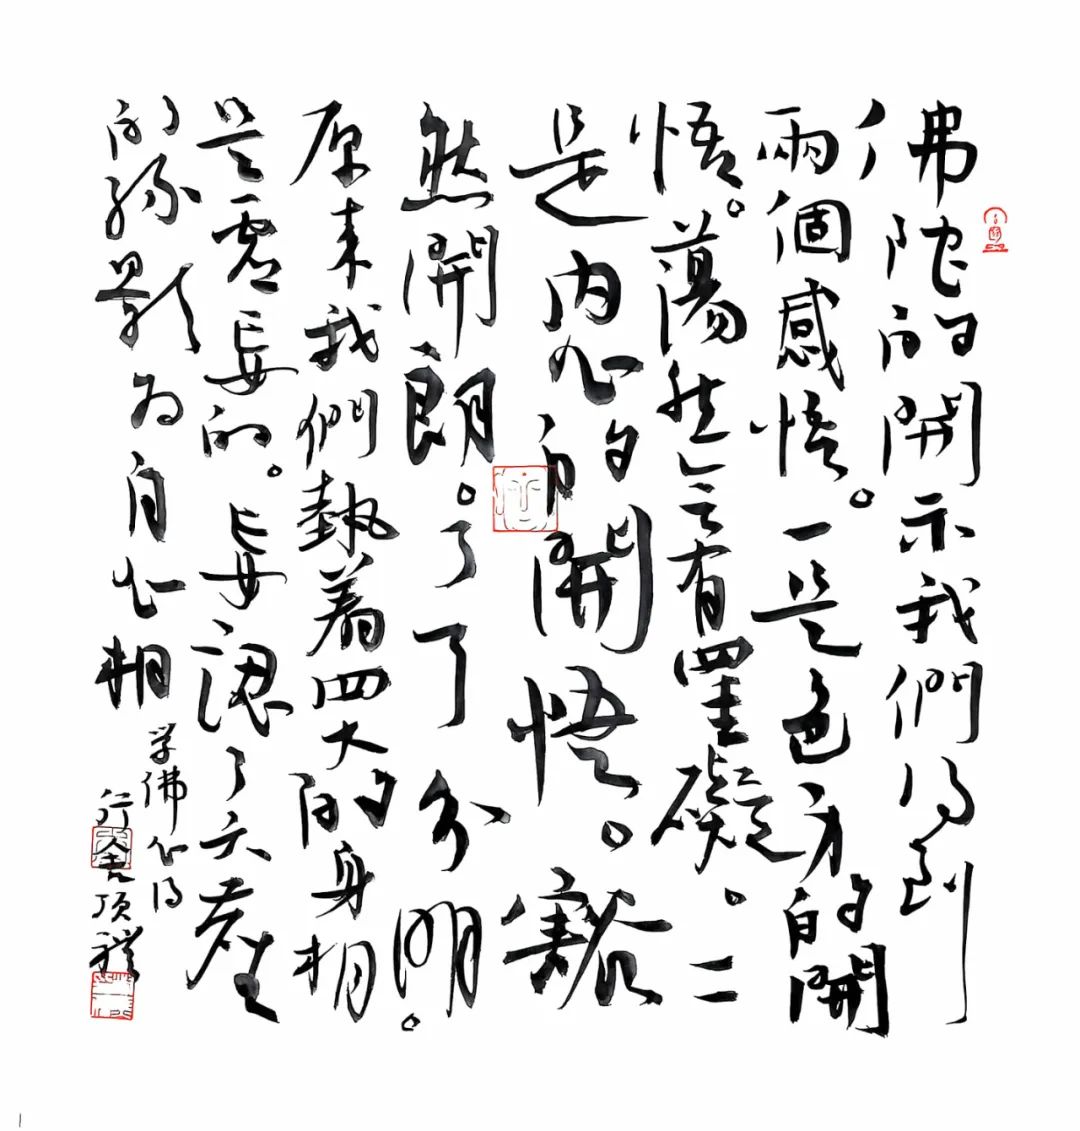 佛陀的開示我們得到
兩個感悟。一是色身的開
悟。蕩然无有罣礙。二
是内心的開悟。豁
然開朗。了了分明。
原来我們執着四大的身相
是虚妄的。妄認了六塵
的緣影为自心相
学佛心得
行舍顶